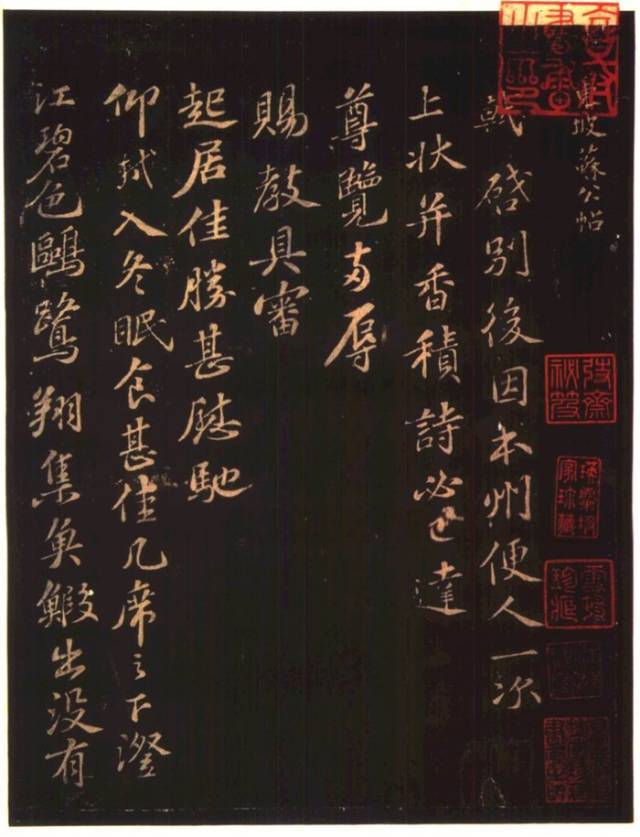 東坡蘇公帖
軾啓別後因本州便人一次
上狀并香積詩必已達
尊覽兩辱
賜教具審
起居佳勝甚慰馳
仰軾入冬眠食甚佳几席之下澄
江碧色鷗鷺翔集魚鰕出没有